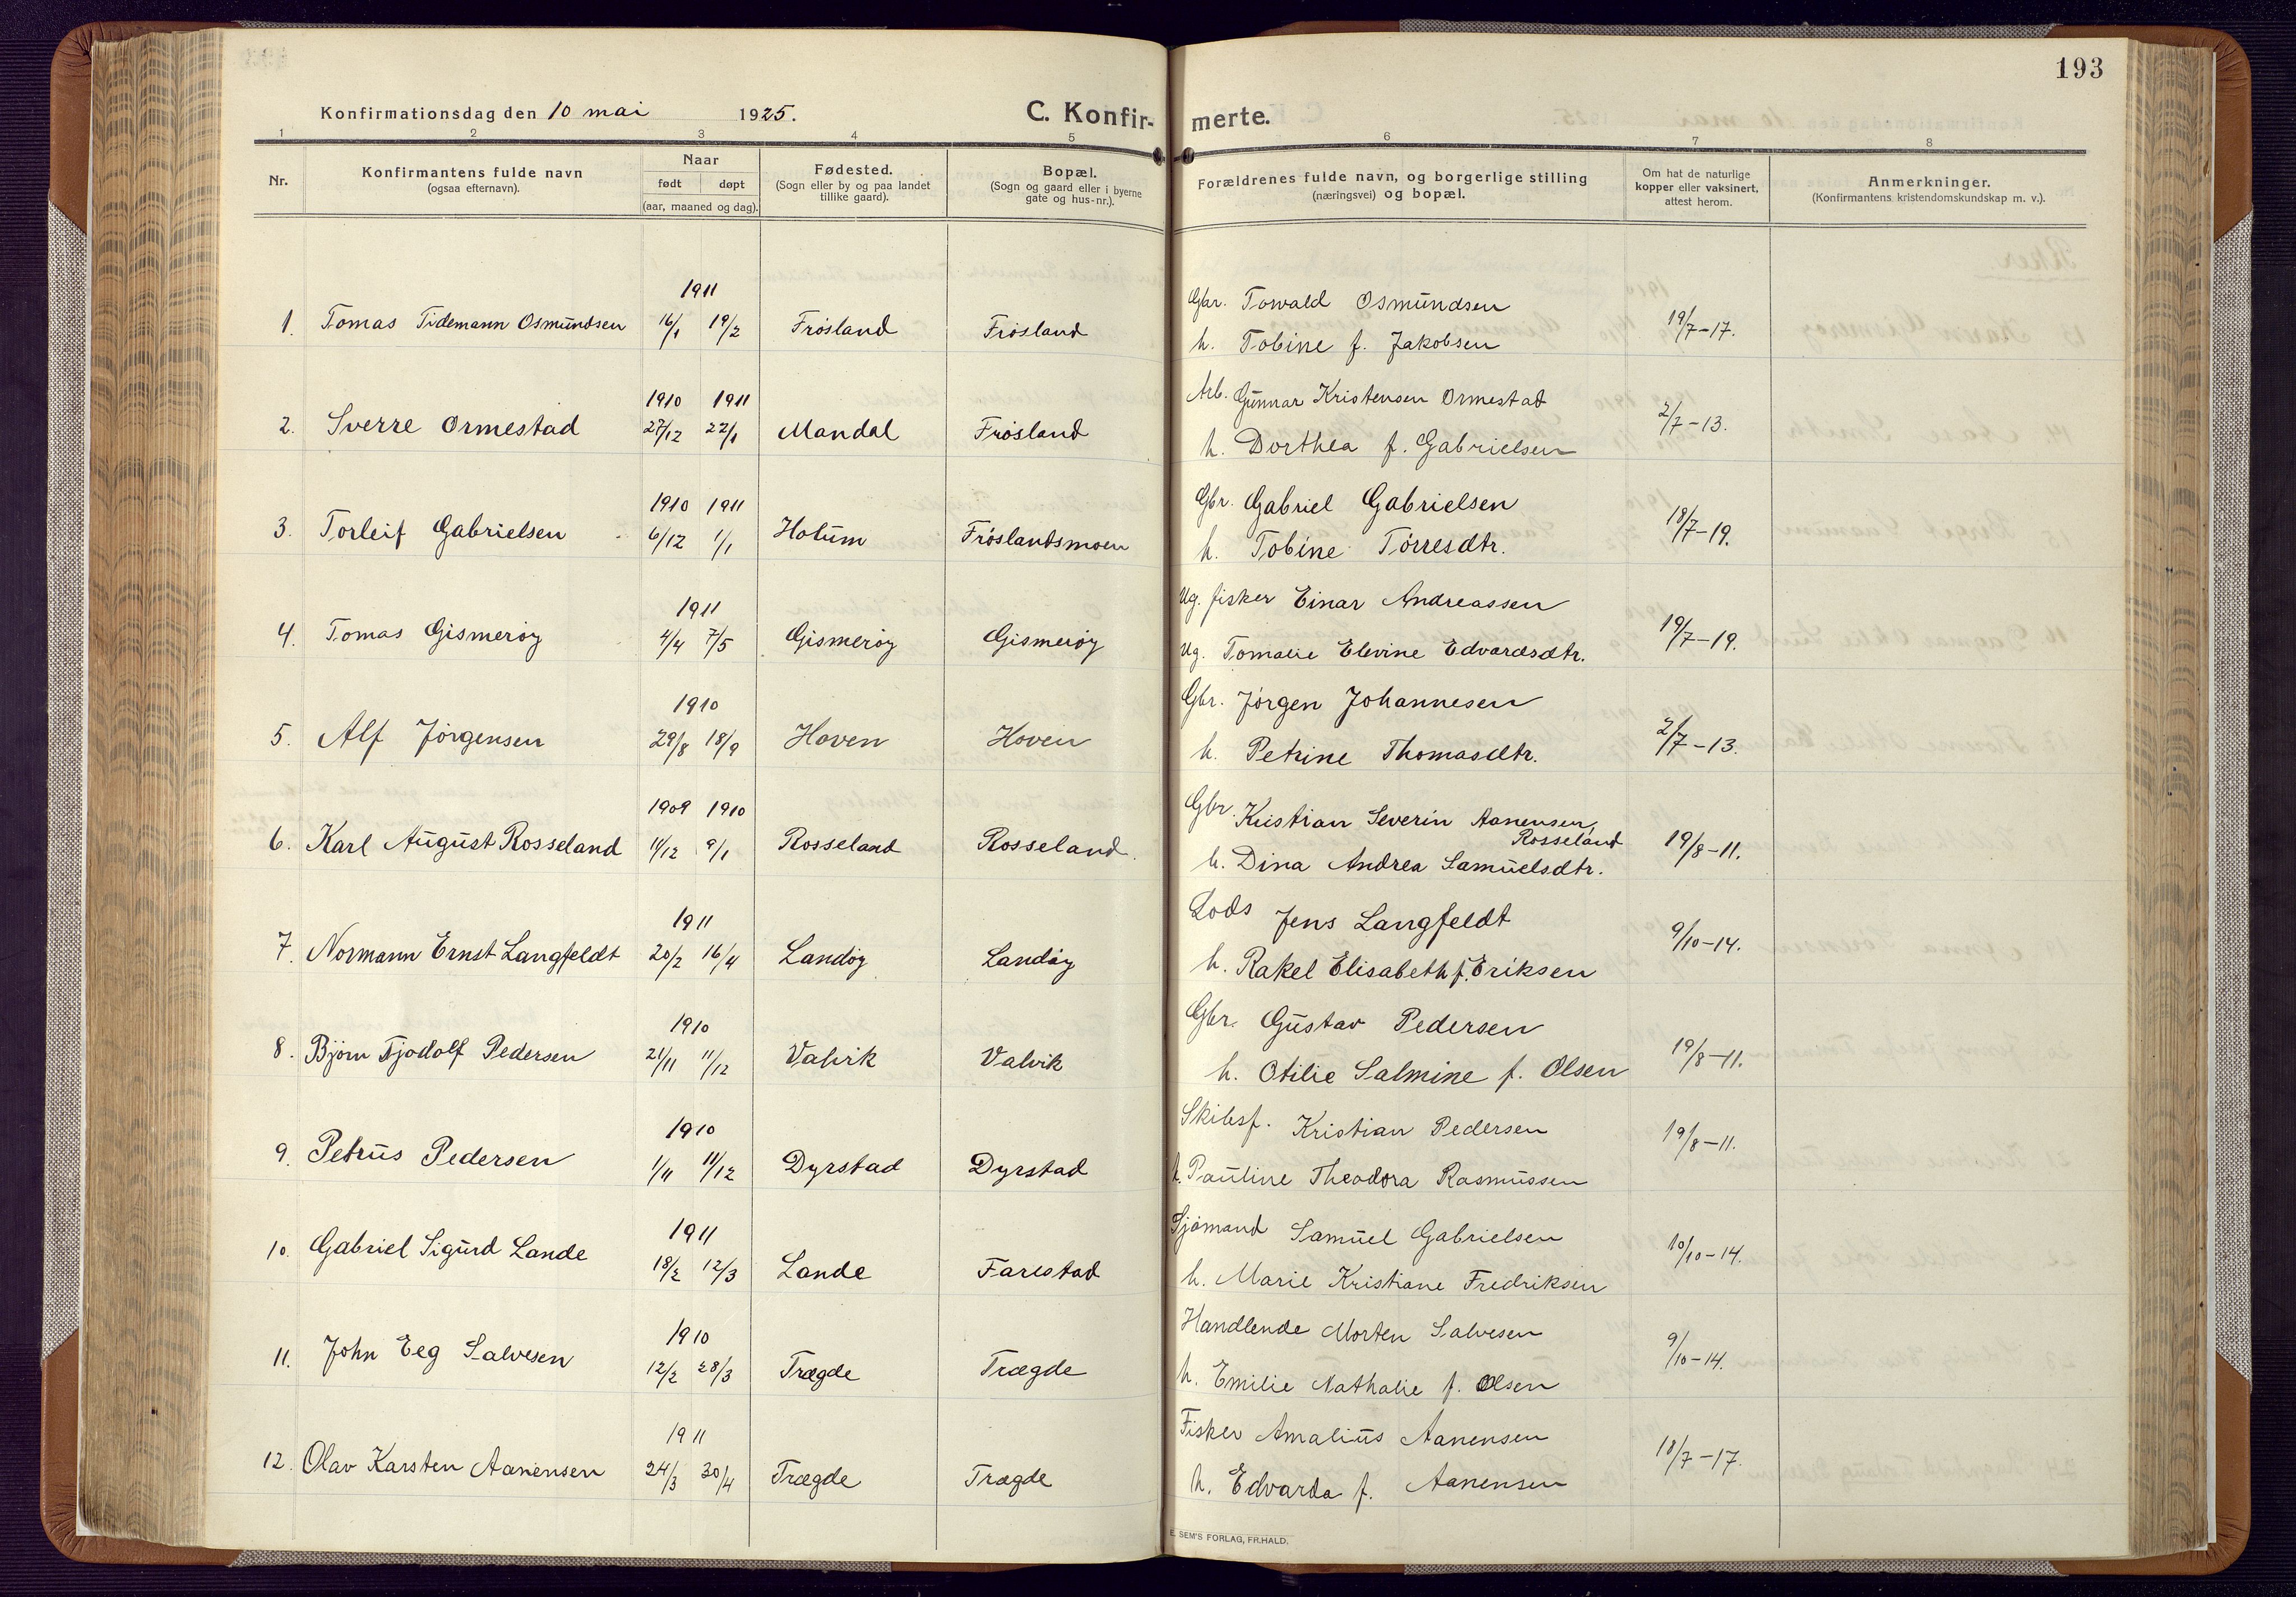 193
Konfirmationsdag den 10 mai 1925.
C. Konfir- merte.
1 2 3 4 5 6 7 8
Nr.
Konfirmantens fulde navn
(ogsaa efternavn).
Naar
født døpt
(aar, maaned og dag).
Fødested.
(Sogn eller by og paa landet
tillike gaard).
Bopæl.
(Sogn og gaard eller i byerne
gate og hus-nr.).
Forældrenes fulde navn, og borgerlige stilling
(næringsvei) og bopæl.
Om hat de naturlige
kopper eller vaksinert,
attest herom.
Anmerkninger.
(Konfirmantens kristendomskundskap m. v.).
1911
1. Tomas Tidemann Osmundsen 16/1 19/2 Frøsland Frøsland
Gbr. Torvald Osmundsen
h. Tobine f. Jakobsen
19/7-17.
1910 1911
2. Sverre Ormestad 27/12 22/1 Mandal Frøsland
Arb. Gunnar Kristensen Ormestad
h. Dorthea f. Gabrielsen
2/7-13.
1910 1911
3. Torleif Gabrielsen 6/12 1/1 Holum Frøslandsmoen
Gbr. Gabriel Gabrielsen
h. Tobine Tørresdtr.
18/7-19.
1911
4. Tomas Gismerøy 4/4 7/5 Gismerøy Gismerøy
Ug. fisker Einar Andreassen
Ug. Tomalie Elevine Edvardsdtr.
19/7-19.
1910
5. Alf Jørgensen 29/8 18/9 Hoven Hoven
Gbr. Jørgen Johannesen
h. Petrine Thomasdtr.
2/7-13.
1909 1910
6. Karl August Rosseland 11/12 9/1 Rosseland Rosseland.
Gbr. Kristian Severin Aanensen,
Rosseland
h. Dina Andrea Samuelsdtr.
19/8-11.
1911
7. Normann Ernst Langfeldt 20/2 16/4 Landøy Landøy
Lods Jens Langfeldt
h. Rakel Elisabeth f. Eriksen
9/10-14.
1910
8. Bjørn Tjodolf Pedersen 21/11 11/12 Valvik Valvik
Gbr. Gustav Pedersen
h. Otilie Salmine f. Olsen
19/8-11.
1910
9. Petrus Pedersen 1/11 11/12 Dyrstad Dyrstad
Skibsf. Kristian Pedersen
h. Pauline Theodora Rasmussen
19/8-11.
1911
10. Gabriel Sigurd Lande 18/2 12/3 Lande Farestad
Sjømand Samuel Gabrielsen
h. Marie Kristiane Fredriksen
10/10-14.
1910
11. John Eeg Salvesen 12/2 28/3 Trægde Trægde
Handlende Morten Salvesen
h. Emilie Nathalie f. Olsen
9/10-14.
1911
12. Olav Karsten Aanensen 24/3 30/4 Trægde Trægde
Fisker Amalius Aanensen
h. Edvarda f. Aanensen
18/7-17.
E. SEM'S FORLAG, FR.HALD.